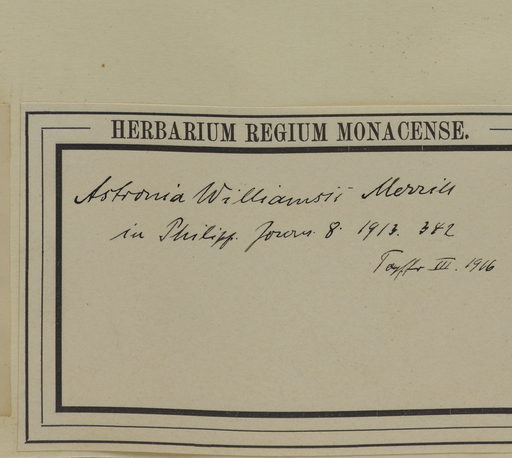 HERBARIUM REGIUM MONACENSE.
Astronia Williamsii Merrill
in Philipp. Journ. 8. 1913. 342
III. 1916